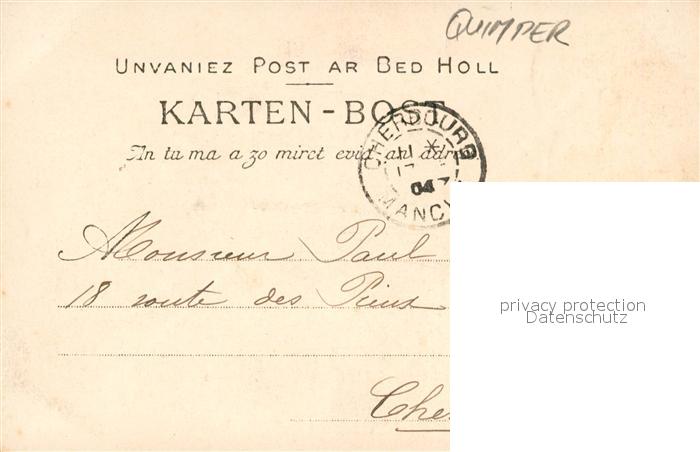 QUIMPER
UNVANIEZ POST AR BED HOLL
KARTEN-BOST
An tu ma a zo miret evid an adre
CHERBOURG
11 *
17
04
MANCHE
Monsieur Paul
18 route des Pieux
Che
privacy protection
Datenschutz